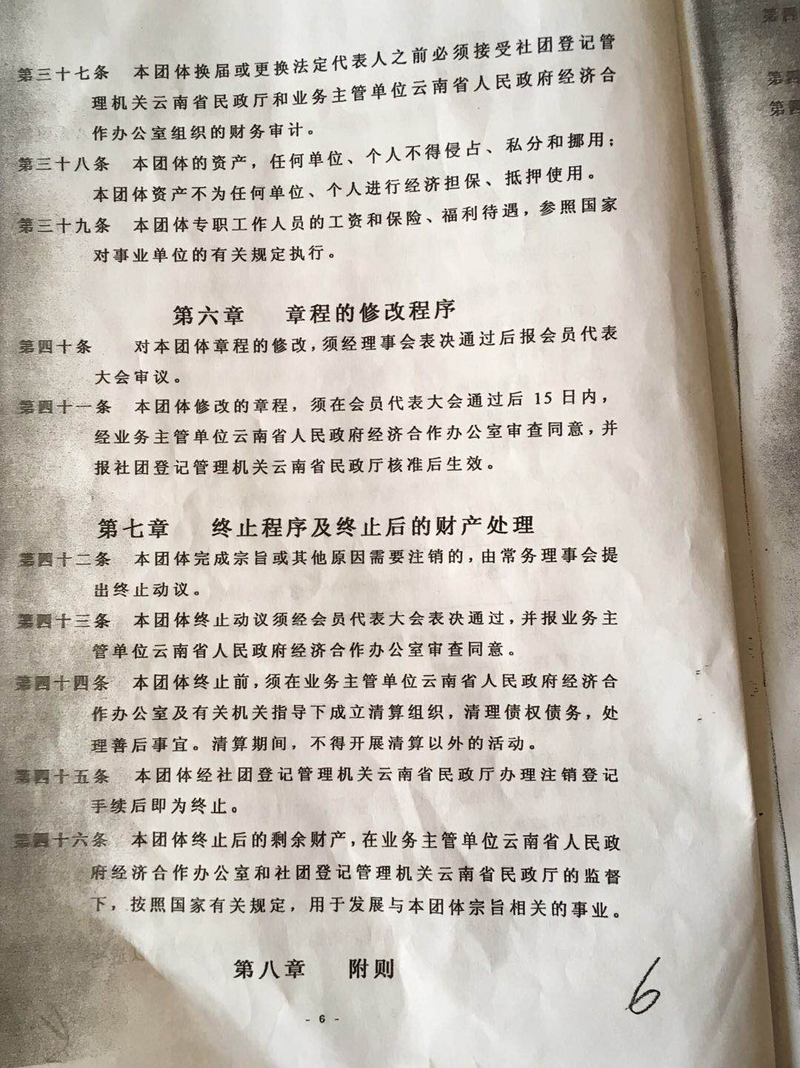 第三十七条 本团体换届或更换法定代表人之前必须接受社团登记管
理机关云南省民政厅和业务主管单位云南省人民政府经济合
作办公室组织的财务审计。
第三十八条 本团体的资产，任何单位、个人不得侵占、私分和挪用；
本团体资产不为任何单位、个人进行经济担保、抵押使用。
第三十九条 本团体专职工作人员的工资和保险、福利待遇，参照国家
对事业单位的有关规定执行。
第六章 章程的修改程序
第四十条 对本团体章程的修改，须经理事会表决通过后报会员代表
大会审议。
第四十一条 本团体修改的章程，须在会员代表大会通过后 15 日内，
经业务主管单位云南省人民政府经济合作办公室审查同意，并
报社团登记管理机关云南省民政厅核准后生效。
第七章 终止程序及终止后的财产处理
第四十二条 本团体完成宗旨或其他原因需要注销的，由常务理事会提
出终止动议。
第四十三条 本团体终止动议须经会员代表大会表决通过，并报业务主
管单位云南省人民政府经济合作办公室审查同意。
第四十四条 本团体终止前，须在业务主管单位云南省人民政府经济合
作办公室及有关机关指导下成立清算组织，清理债权债务，处
理善后事宜。清算期间，不得开展清算以外的活动。
第四十五条 本团体经社团登记管理机关云南省民政厅办理注销登记
手续后即为终止。
第四十六条 本团体终止后的剩余财产，在业务主管单位云南省人民政
府经济合作办公室和社团登记管理机关云南省民政厅的监督
下，按照国家有关规定，用于发展与本团体宗旨相关的事业。
第八章 附则
- 6 -
6
第四
第四
第四